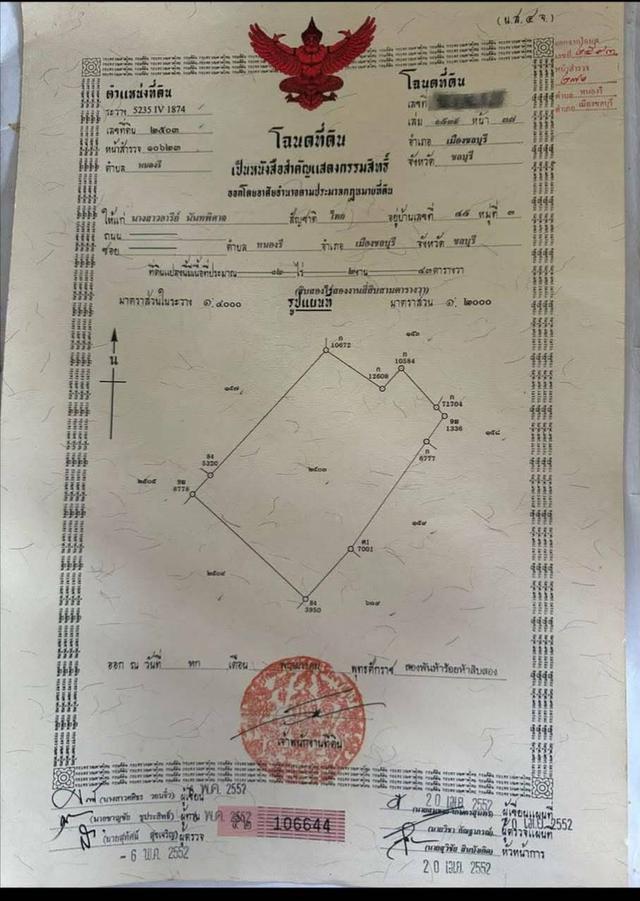 (น.ส. ๔ จ.)
ตำแหน่งที่ดิน
ระวาง 5235 IV 1874
เลขที่ดิน ๒๕๐๓
หน้าสำรวจ ๑๐๖๒๓
ตำบล หนองรี
โฉนดที่ดิน
เลขที่
เล่ม หน้า ๓๗
อำเภอ เมืองชลบุรี
จังหวัด ชลบุรี
หน้าสำรวจ
ตำบล หนองรี
อำเภอ เมืองชลบุรี
โฉนดที่ดิน
เป็นหนังสือสำคัญแสดงกรรมสิทธิ์
ออกโดยอาศัยอำนาจตามประมวลกฎหมายที่ดิน
ให้แก่ นางสาวอารีย์ นันทพิศาล สัญชาติ ไทย อยู่บ้านเลขที่ ๔๕ หมู่ที่ ๓
ถนน
ซอย ตำบล หนองรี อำเภอ เมืองชลบุรี จังหวัด ชลบุรี
ที่ดินแปลงนี้มีเนื้อที่ประมาณ ๑๒ ไร่ ๒ งาน ๔๓ ตารางวา
(สิบสองไร่สองงานสี่สิบสามตารางวา)
มาตราส่วนในระวาง ๑:๔๐๐๐ รูปแผนที่ มาตราส่วน ๑:๒๐๐๐
น
ก
10672
ก
12608
ก
10584
ก
71704
1336
ก
6777
๑๕๗
๑๕๘
๑๕๙
5320
8778
๒๕๐๕
๒๕๐๓
๒๕๐๔
7001
3950
ออก ณ วันที่ หก เดือน พฤษภาคม พุทธศักราช สองพันห้าร้อยห้าสิบสอง
เจ้าพนักงานที่ดิน
ผู้เขียน พ.ค. 2552
พ.ค. 2552
ผู้ตรวจ
- 6 พ.ค. 2552
106644
20 เม.ย. 2552
ผู้เขียนแผนที่
20 เม.ย. 2552
ผู้ตรวจแผนที่
หัวหน้าการ
20 เม.ย. 2552